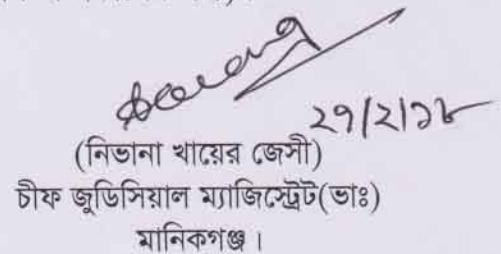 ২৭/২/১৮
(নিভানা খায়ের জেসী)
চীফ জুডিসিয়াল ম্যাজিস্ট্রেট(ভাঃ)
মানিকগঞ্জ।